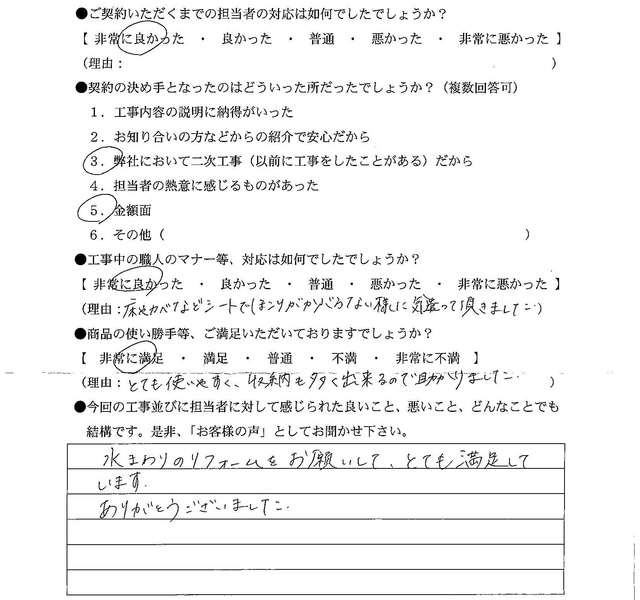 ●ご契約いただくまでの担当者の対応は如何でしたでしょうか？
【 非常に良かった ・ 良かった ・ 普通 ・ 悪かった ・ 非常に悪かった 】
（理由： ）
●契約の決め手となったのはどういった所だったでしょうか？（複数回答可）
１．工事内容の説明に納得がいった
２．お知り合いの方などからの紹介で安心だから
３．弊社において二次工事（以前に工事をしたことがある）だから
４．担当者の熱意に感じるものがあった
５．金額面
６．その他（ ）
●工事中の職人のマナー等、対応は如何でしたでしょうか？
【 非常に良かった ・ 良かった ・ 普通 ・ 悪かった ・ 非常に悪かった 】
（理由：床やカベなどシートでほこりがかぶらない様に気を遣って頂きました.）
●商品の使い勝手等、ご満足いただいておりますでしょうか？
【 非常に満足 ・ 満足 ・ 普通 ・ 不満 ・ 非常に不満 】
（理由：とても使いやすく、収納も多く出来るので助かりました. ）
●今回の工事並びに担当者に対して感じられた良いこと、悪いこと、どんなことでも
結構です。是非、「お客様の声」としてお聞かせ下さい。
水まわりのリフォームをお願いして、とても満足して
います.
ありがとうございました.